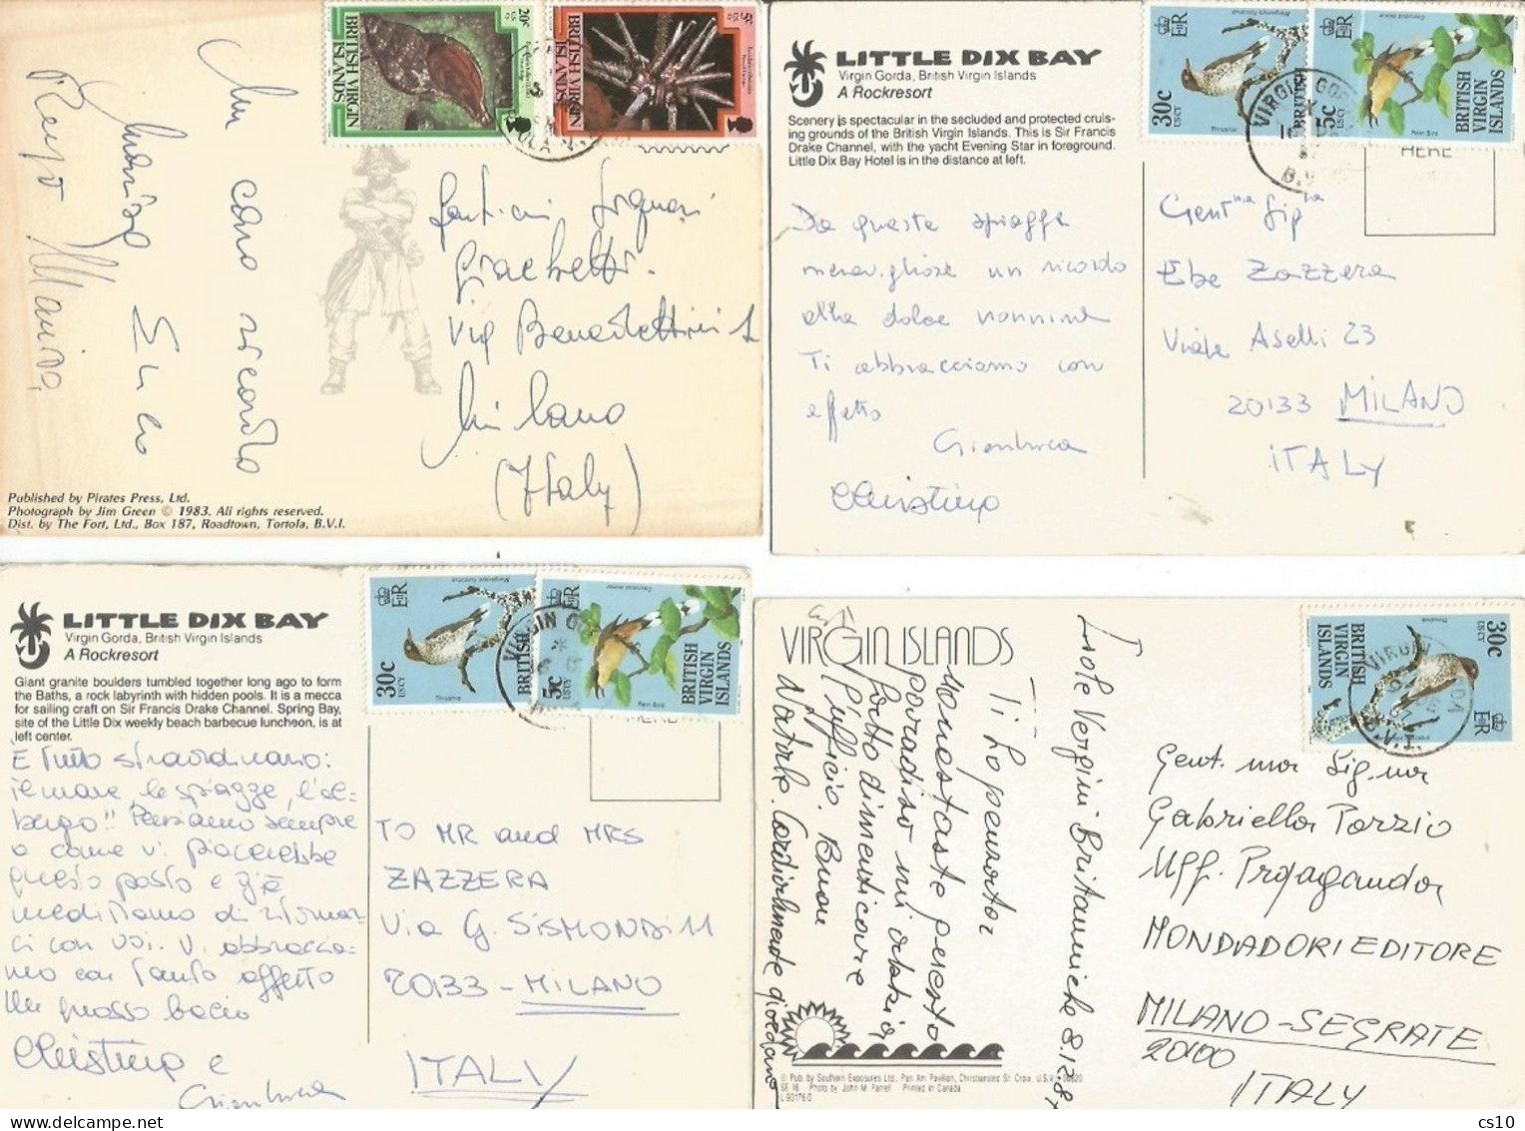 20c
US CY
BRITISH VIRGIN
ISLANDS
5c
US CY
BRITISH VIRGIN
ISLANDS
Un caro ricordo
Gentili Signori
Via Benedettini 1
Milano
(Italy)
Published by Pirates Press, Ltd.
Photograph by Jim Green © 1983. All rights reserved.
Dist. by The Fort, Ltd., Box 187, Roadtown, Tortola, B.V.I.
LITTLE DIX BAY
Virgin Gorda, British Virgin Islands
A Rockresort
Scenery is spectacular in the secluded and protected cruis-
ing grounds of the British Virgin Islands. This is Sir Francis
Drake Channel, with the yacht Evening Star in foreground.
Little Dix Bay Hotel is in the distance at left.
Da queste spiagge
meravigliose un ricordo
alla dolce nonnina
Ti abbracciamo con
affetto
Gianluca
Christina
30c
US CY
Thrushie
BRITISH
5c
US CY
BRITISH
VIRGIN
ISLANDS
HERE
Gent.ma Sig.ra
Ebe Zazzera
Viale Aselli 23
20133 MILANO
ITALY
LITTLE DIX BAY
Virgin Gorda, British Virgin Islands
A Rockresort
Giant granite boulders tumbled together long ago to form
the Baths, a rock labyrinth with hidden pools. It is a mecca
for sailing craft on Sir Francis Drake Channel. Spring Bay,
site of the Little Dix weekly beach barbecue luncheon, is at
left center.
È tutto straordinario:
il mare, le spiagge, l'al-
bergo!! Pensiamo sempre
a come vi piacerebbe
questo posto e già
meditiamo di ritornar-
ci con voi. Vi abbraccia-
mo con tanto affetto
Un grosso bacio
Christina e
Gianluca
30c
US CY
Thrushie
BRITISH
5c
US CY
BRITISH
VIRGIN
ISLANDS
HERE
TO MR and MRS
ZAZZERA
Via G. SISMONDI 11
20133 - MILANO
ITALY
VIRGIN ISLANDS
Isole Vergini Britanniche 8.12.87
Ti ho pensato
nonostante questo
paradiso mi abbia
fatto dimenticare
l'ufficio. Buon
Natale. Cordialmente
© Pub. by Southern Exposures Ltd., Pan Am Pavilion, Christiansted St. Croix, U.S.V.I. 00820
SE 16 Photo by John M. Farrell Printed in Canada
30c
US CY
Thrushie
BRITISH
VIRGIN
ISLANDS
Gent.ma Sig.na
Gabriella Porzio
Uff. Propaganda
MONDADORI EDITORE
MILANO-SEGRATE
20100
ITALY
cs10